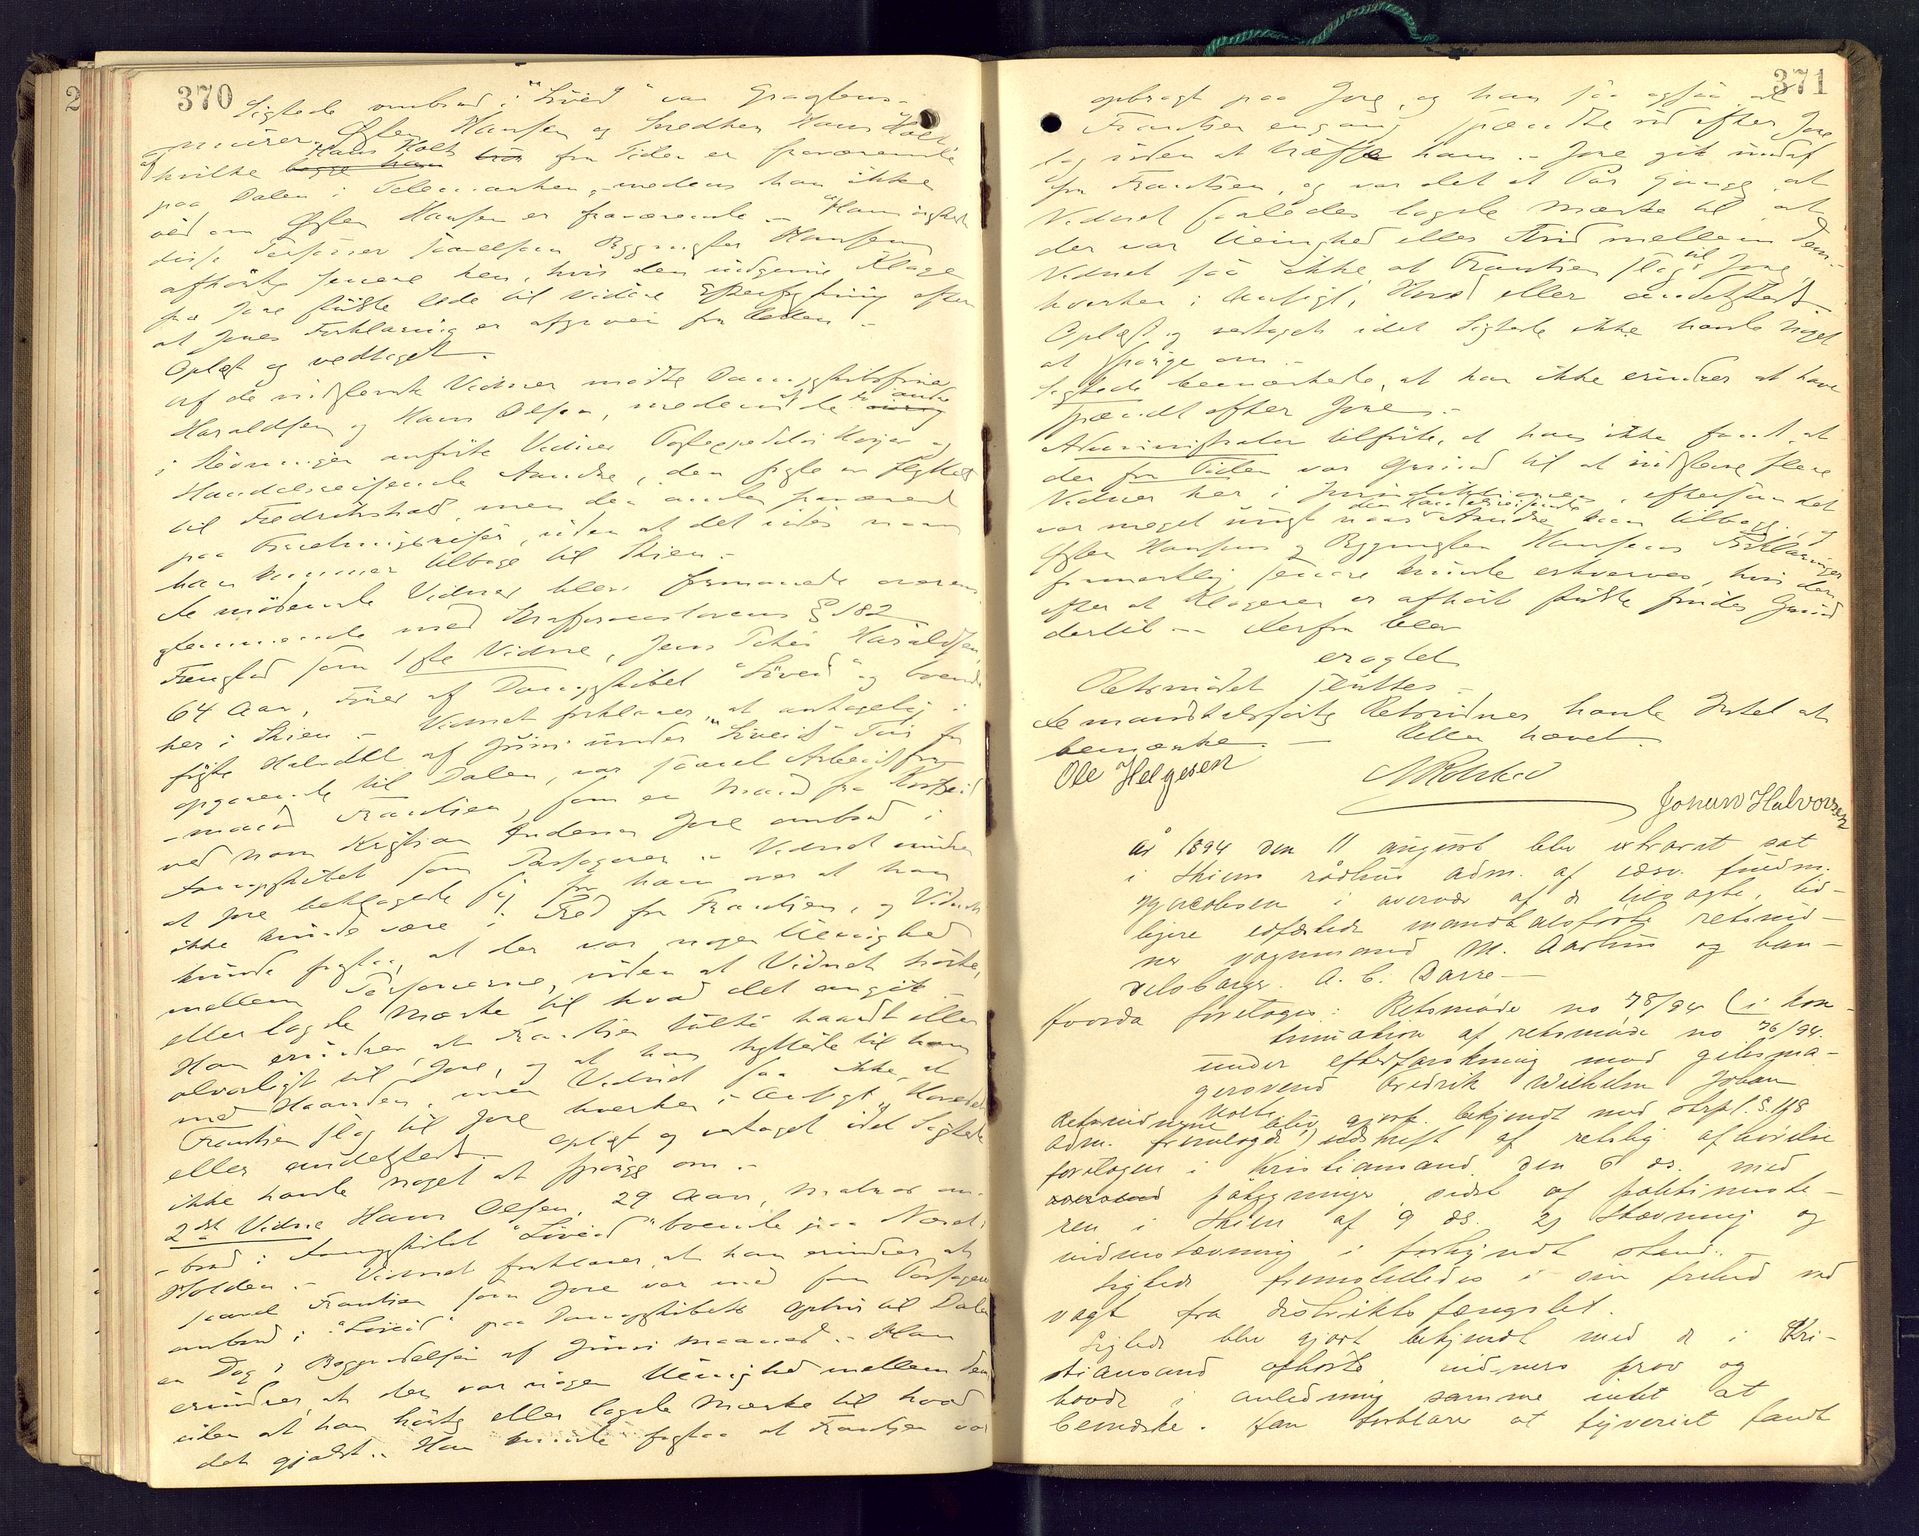 370
Sigtede ombord i "Løveid" var Gragkens-
murer Esten Hansen og Snedker Hans Holt
af hvilke Hans Holt fra Tiden er fraværende
paa Dalen i Telemarken, medens han ikke
ved om Esten Hansen er fraværende.
disse Personer saavelsom Bygmester Hansen
afhørtes senere hen, hvis den udgivne Klage
fra Jore skulde lede til videre Efterforskning efter
at Jores Forklaring er afgiven fra Leden.
Oplæst og vedtaget.
Af de indstevnte Vidner mødte Dampskibsfører
Haraldsen og Hans Olsen, medens af de to andre
i Stevningen anførte Vidner Togexpeditør
Handelsreisende Aandre, den første er flyttet
til Fredrikshald, men den anden fraværende
paa Forretningsreiser, uden at det vides naar
han kommer tilbage til Skien.
De mødende Vidner blev formanede overens-
stemmende med Straffeproceslovens § 182
Fremstod som 1ste Vidne, Jens Peter Haraldsen,
64 Aar, Fører af Dampskibet "Løveid" og boende
her i Skien. Vidnet forklarer, at antagelig i
første Halvdel af Juni under "Løveid"s Tur fra
opgaaende til Dalen, var saavel Arbeids-
mand Frantsen, som en Mand fra
ved navn Kristian Andersen Jore ombord i
Dampskibet som Passagerer. Vidnet erindrer
at Jore beklagede sig for ham over at han
ikke kunde være i Fred for Frantsen, og Vidnet
kunde forstaa, at der var nogen Uenighed
mellem Personerne, uden at Vidnet hørte,
eller lagde Mærke til hvad det angik.
Han erindrer at Frantsen talte haardt eller
alvorligt til Jore, og at han hyttede til ham
med Haanden, men Vidnet saa ikke, at
Frantsen slog til Jore hverken i Ansigt, Hovedet
eller andetsteds. Oplæst og vedtaget idet Sigtede
ikke havde noget at spørge om.
2det Vidne Hans Olsen, 29 Aar, Matros om-
bord i Dampskibet "Løveid" boende paa Nordre
Holden. Vidnet forklarer, at han erindrer, at
saavel Frantsen som Jore var med som Passagerer
ombord i "Løveid" paa Dampskibets Optur til Dalen
en Dag i Begyndelsen af Juni maaned. Han
erindrer, at der var nogen Uenighed mellem dem
uden at han hørte eller lagde Mærke til hvad
det gjaldt. Han kunde forstaa at Frantsen var
371
opbragt paa Jore, og han saa ogsaa at
Frantsen engang spændte ud efter Jore
dog uden at træffe ham. Jore gik undaf
for Frantsen, og var det et Par Gange at
Vidnet saaledes lagde Mærke til at
der var Uenighed eller Strid mellem dem.
Vidnet saa ikke at Frantsen slog til Jore,
hverken i Ansigt, Hoved eller andetsteds.
Oplæst og vedtaget idet Sigtede ikke havde noget
at spørge om.
Sigtede bemærkede, at han ikke erindrer at have
spændt efter Jore.
Administrator tilførte, at han ikke fandt, at
der for Tiden var Grund til at indstevne flere
Vidner her i Jurisdiktionen, eftersom det
var meget uvist naar den Handelsreisende Aandre kom tilbage, og
Esten Hansens og Bygmester Hansens Forklaringer
formentlig senere kunde erhverves, hvis der
efter at Klageren er afhørt skulde findes Grund
dertil. Derfra blev
eragtet
Retsmødet sluttes.
De mandtalsførte Retsvidner havde Intet at
bemærke. Retten hævet.
Ole Helgesen
Johan Halvorsen
År 1894 den 11 august blev extraret sat
i Skiens rådhus adm. af edsv. fuldm.
Jacobsen i overvær af de tilsagte, tid-
ligere edfæstede mandtalsførte retsvid-
ner vognmand M. Aarhus og han-
delsborger A. C. Darre
hvorda foretoges: Retsmøde no 78/94 (i kon-
tinuation af retsmøde no 76/94.
under efterforskning mod
Fredrik Wilhelm Johan
Holte
Retsvidnerne blev gjort bekjendt med strpl. § 118
Adm. fremlagde udskrift af retslig afhørelse
foretagen i Kristiansand den 6 ds. med
påtegninger, sidst af politimeste-
ren i Skien af 9 ds. 2) Stævning og
vidnestævning i forkyndt stand.
Sigtede fremstilledes i sin frihed ved
vagt fra distriktsfængslet.
Sigtede blev gjort bekjendt med de i Kri-
stiansand afhørte vidners prov og
havde i anledning samme intet at
bemærke. Han forklare at tyveriet fandt